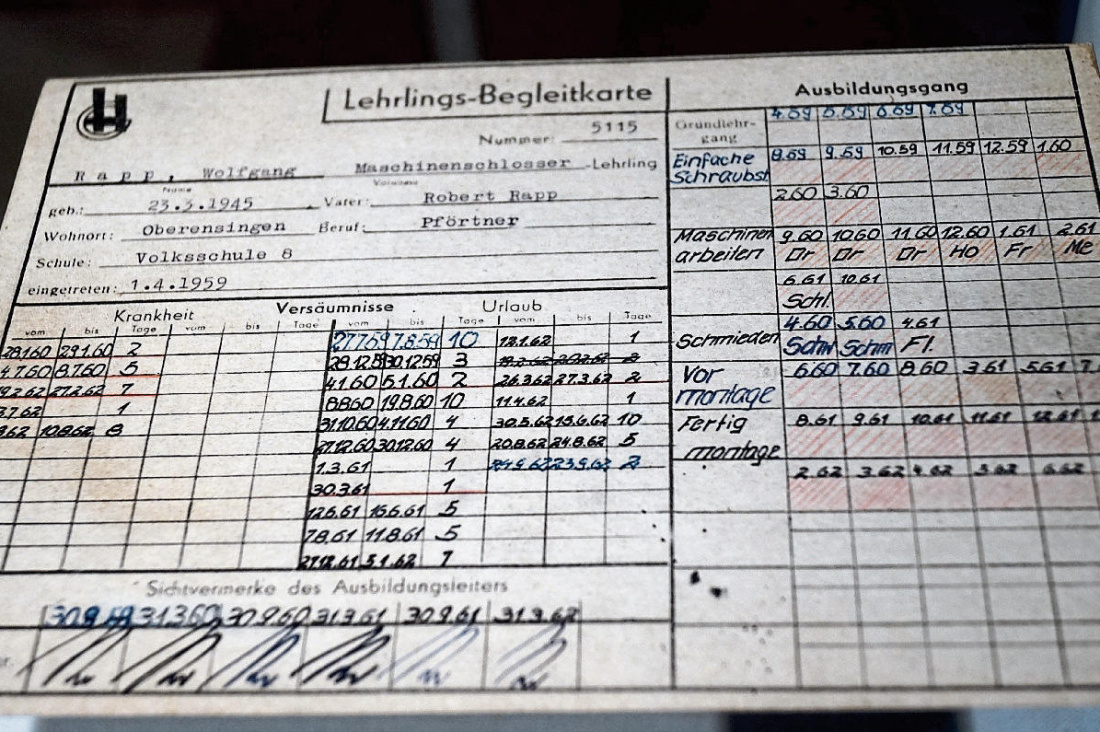 Lehrlings-Begleitkarte
Nummer: 5115
Rapp, Wolfgang Maschinenschlosser -Lehrling
Name Vorname
geb.: 23.3.1945 Vater: Robert Rapp
Wohnort: Oberensingen Beruf: Pförtner
Schule: Volksschule 8
eingetreten: 1.4.1959
Versäumnisse
Krankheit Urlaub
vom bis Tage vom bis Tage vom bis Tage vom bis Tage
28.1.60 29.1.60 2 27.7.59 7.8.59 10 12.1.62 1
4.7.60 8.7.60 5 28.12.59 30.12.59 3
27.2.62 7 4.1.60 5.1.60 2 26.3.62 27.3.62 2
1 8.8.60 19.8.60 10 11.4.62 1
10.8.62 8 31.10.60 4.11.60 4 30.5.62 15.6.62 10
27.12.60 30.12.60 4 20.8.62 24.8.62 5
1.3.61 1 23.9.62 2
30.3.61 1
12.6.61 16.6.61 5
7.8.61 11.8.61 5
27.12.61 5.1.62 7
Sichtvermerke des Ausbildungsleiters
30.9.59 31.3.60 30.9.60 31.3.61 30.9.61 31.3.62
Ausbildungsgang
Grundlehr-
gang 4.59 5.59 6.59 7.59
Einfache
Schraubst. 8.59 9.59 10.59 11.59 12.59 1.60
2.60 3.60
Maschinen 9.60 10.60 11.60 12.60 1.61 2.61
arbeiten Dr Dr Dr Ho Fr Me
6.61 10.61
Schl.
Schmieden 4.60 5.60 4.61
Schm Schm Fl.
Vor 6.60 7.60 8.60 3.61 5.61
montage
Fertig 8.61 9.61 10.61 11.61 12.61
montage
2.62 3.62 4.62 5.62 6.62